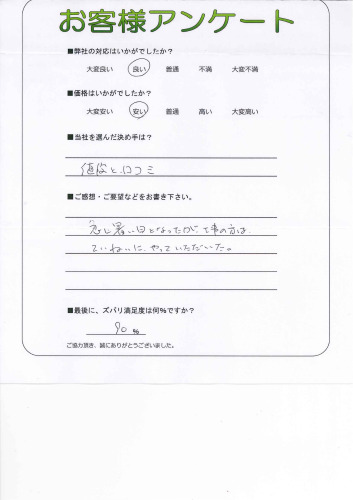 お客様アンケート
■弊社の対応はいかがでしたか？
大変良い 良い 普通 不満 大変不満
■価格はいかがでしたか？
大変安い 安い 普通 高い 大変高い
■当社を選んだ決め手は？
値段と口コミ
■ご感想・ご要望などをお書き下さい。
急に暑い日となったが、工事の方は
ていねいに、やっていただいた。
■最後に、ズバリ満足度は何％ですか？
90 %
ご協力頂き、誠にありがとうございました。